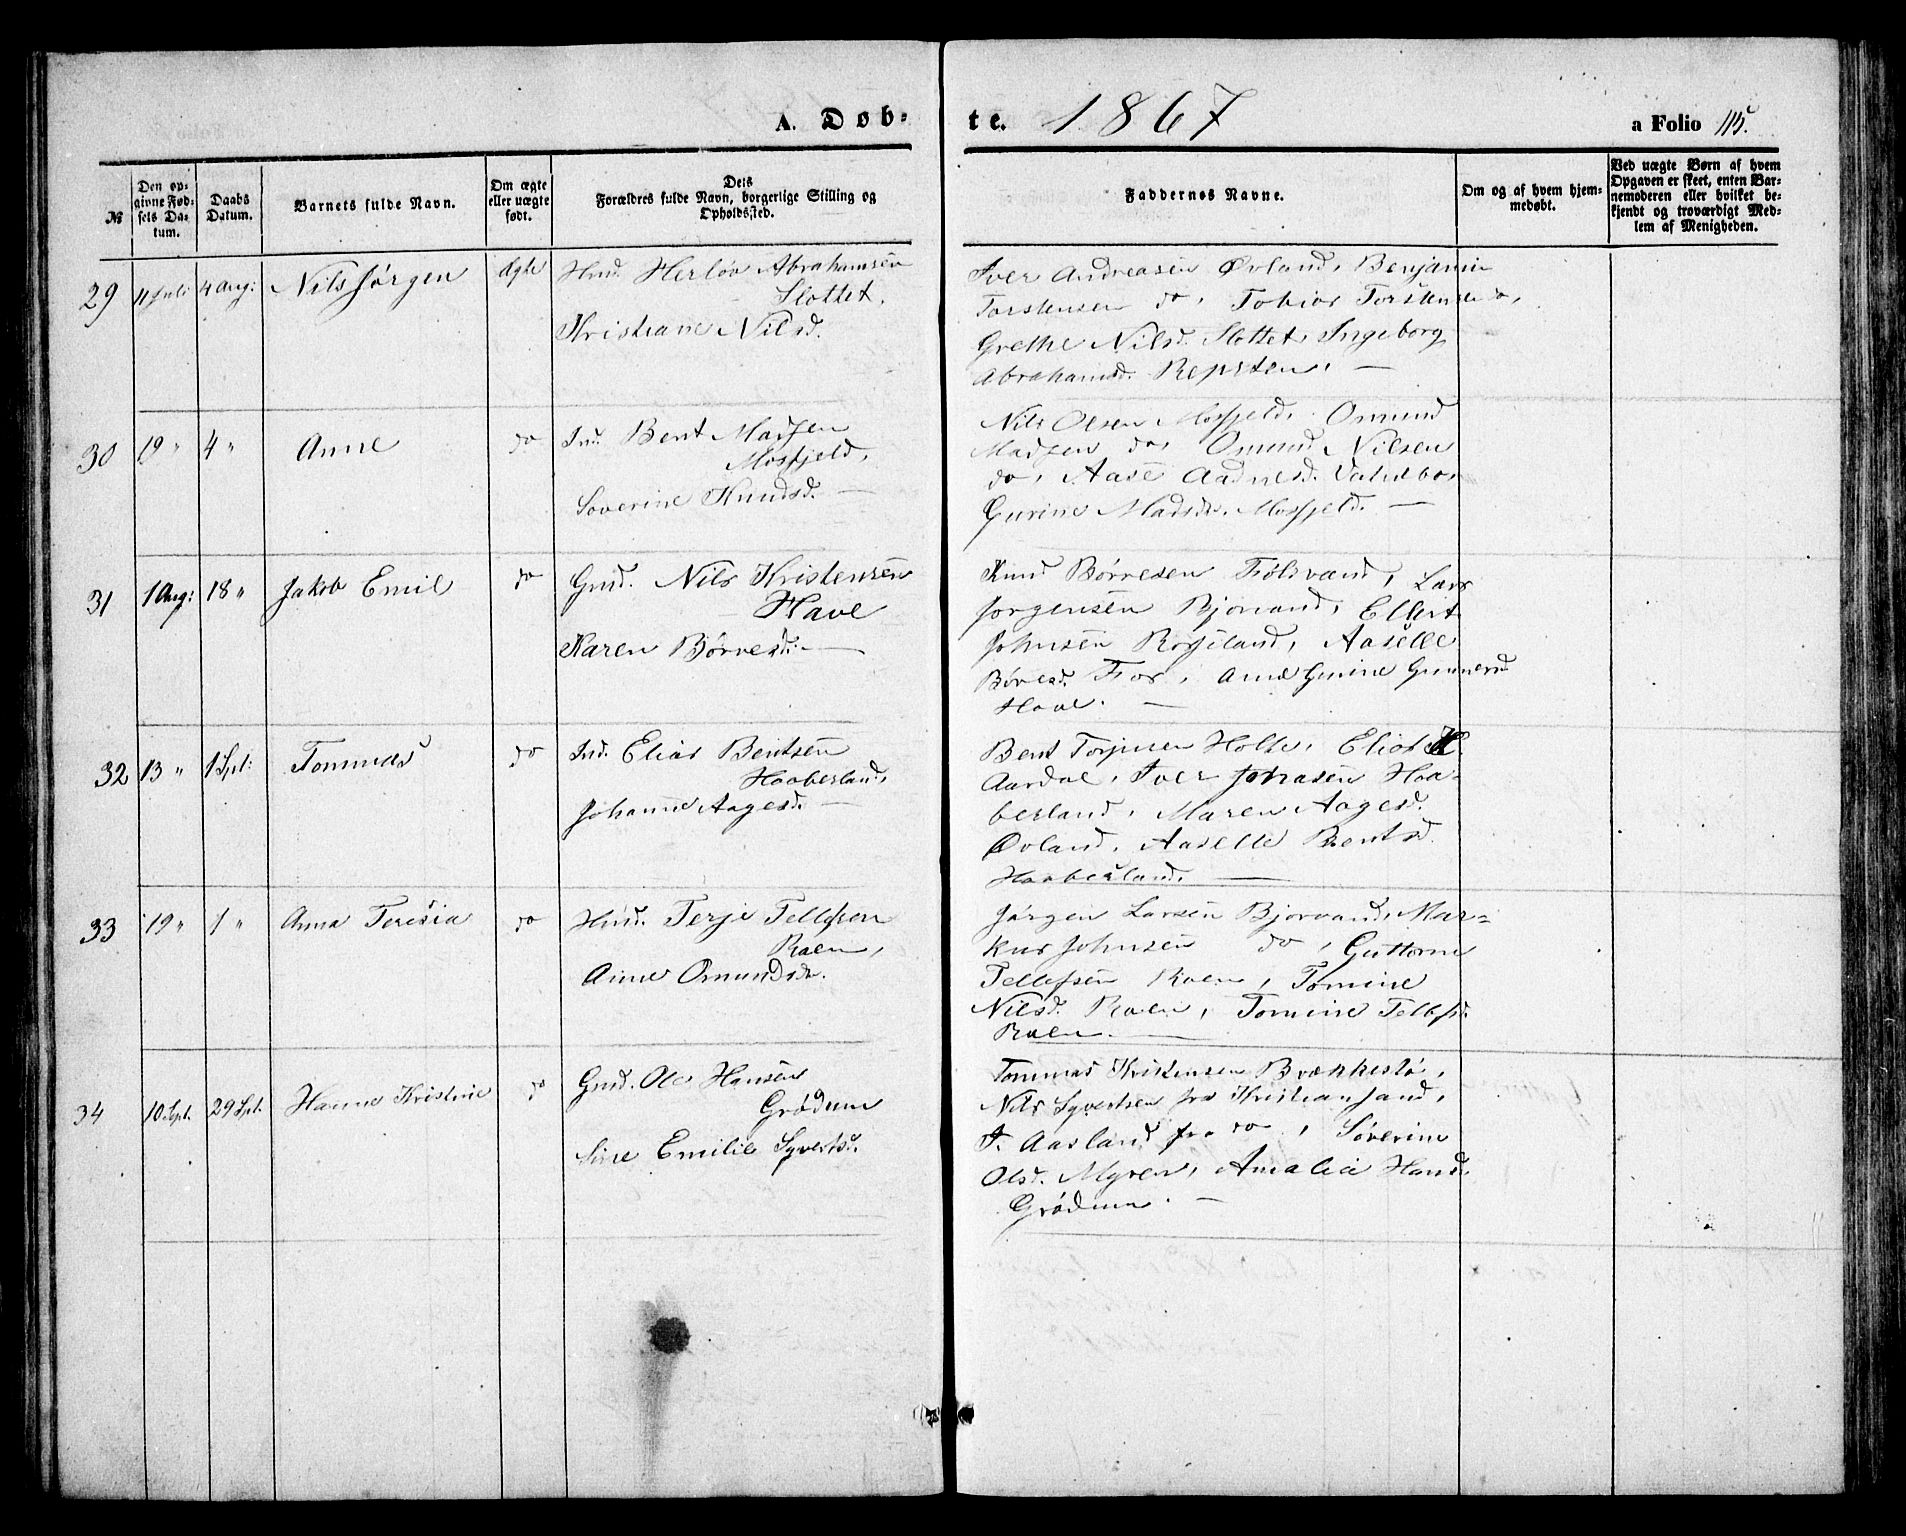 A. Døb-
te. 1867
a Folio 115.
№
Den op-
givne Fød-
sels Da-
tum.
Daabs
Datum.
Barnets fulde Navn.
Om ægte
eller uægte
født.
Dets
Forældres fulde Navn, borgerlige Stilling og
Opholdssted.
Faddernes Navne.
Om og af hvem hjem-
medøbt.
Ved uægte Børn af hvem
Opgaven er skeet, enten Bar-
nemoderen eller hvilket be-
kjendt og troværdigt Med-
lem af Menigheden.
29 11 Juli 4 Aug: Nils Jørgen Ægte
Hmd. Herlov Abrahamsen
Slottet,
Kristiane Nilsd.
Iver Andreasen Øvland, Benjamin
Torstensen do, Tobias Torstensen do,
Grethe Nilsd. Slottet, Ingeborg
Abrahamsd. Repsten, —
30 19 " 4 " Anne do
Ind. Bent Madsen
Mosfjeld,
Soverine Knudsd. —
Nils Olsen Mosfjeld, Omund
Madsen do, Omund Nilsen
do, Aase Aadnesd.
Gurine Madsd. Mosfjeld. —
31 1 Aug: 18 " Jakob Emil do
Gmd. Nils Kristensen
Have
Karen Børvesd. —
Knud Børvesen Lars
Jørgensen Bjorvand, Ellert
Johnsen Rosseland, Aaselle
Børvesd. Anne Gurine Gunnersd.
Have. —
32 13 " 1 Spt: Tommas do
Ind. Elias Bentsen
Haaberland,
Johanne Aagesd. —
Bent Torjusen Holte, Elias
Aardal, Iver Johnsen Haa-
berland, Maren Aagesd.
Øvland, Aaselle Bentsd.
Haaberland. —
33 19 " 1 " Anna Teresia do
Hmd. Terje Tellefsen
Roen,
Anne Omundsd.
Jørgen Larsen Bjorvand, Mar-
kus Johnsen do, Guttorm
Tellefsen Roen, Tomine
Nilsd. Roen, Tomine Tellefsd.
Roen. —
34 10 Spt. 29 Spt. Hanne Kristine do
Gmd. Ole Hansen
Grødum
Sine Emilie Syvertsd.
Tommas Kristensen Brækkestø,
Nils Syvertsen fra Kristiansand,
T. Aasland fra do, Søverine
Olsd. Myren, Amalia Hansd.
Grødum. —